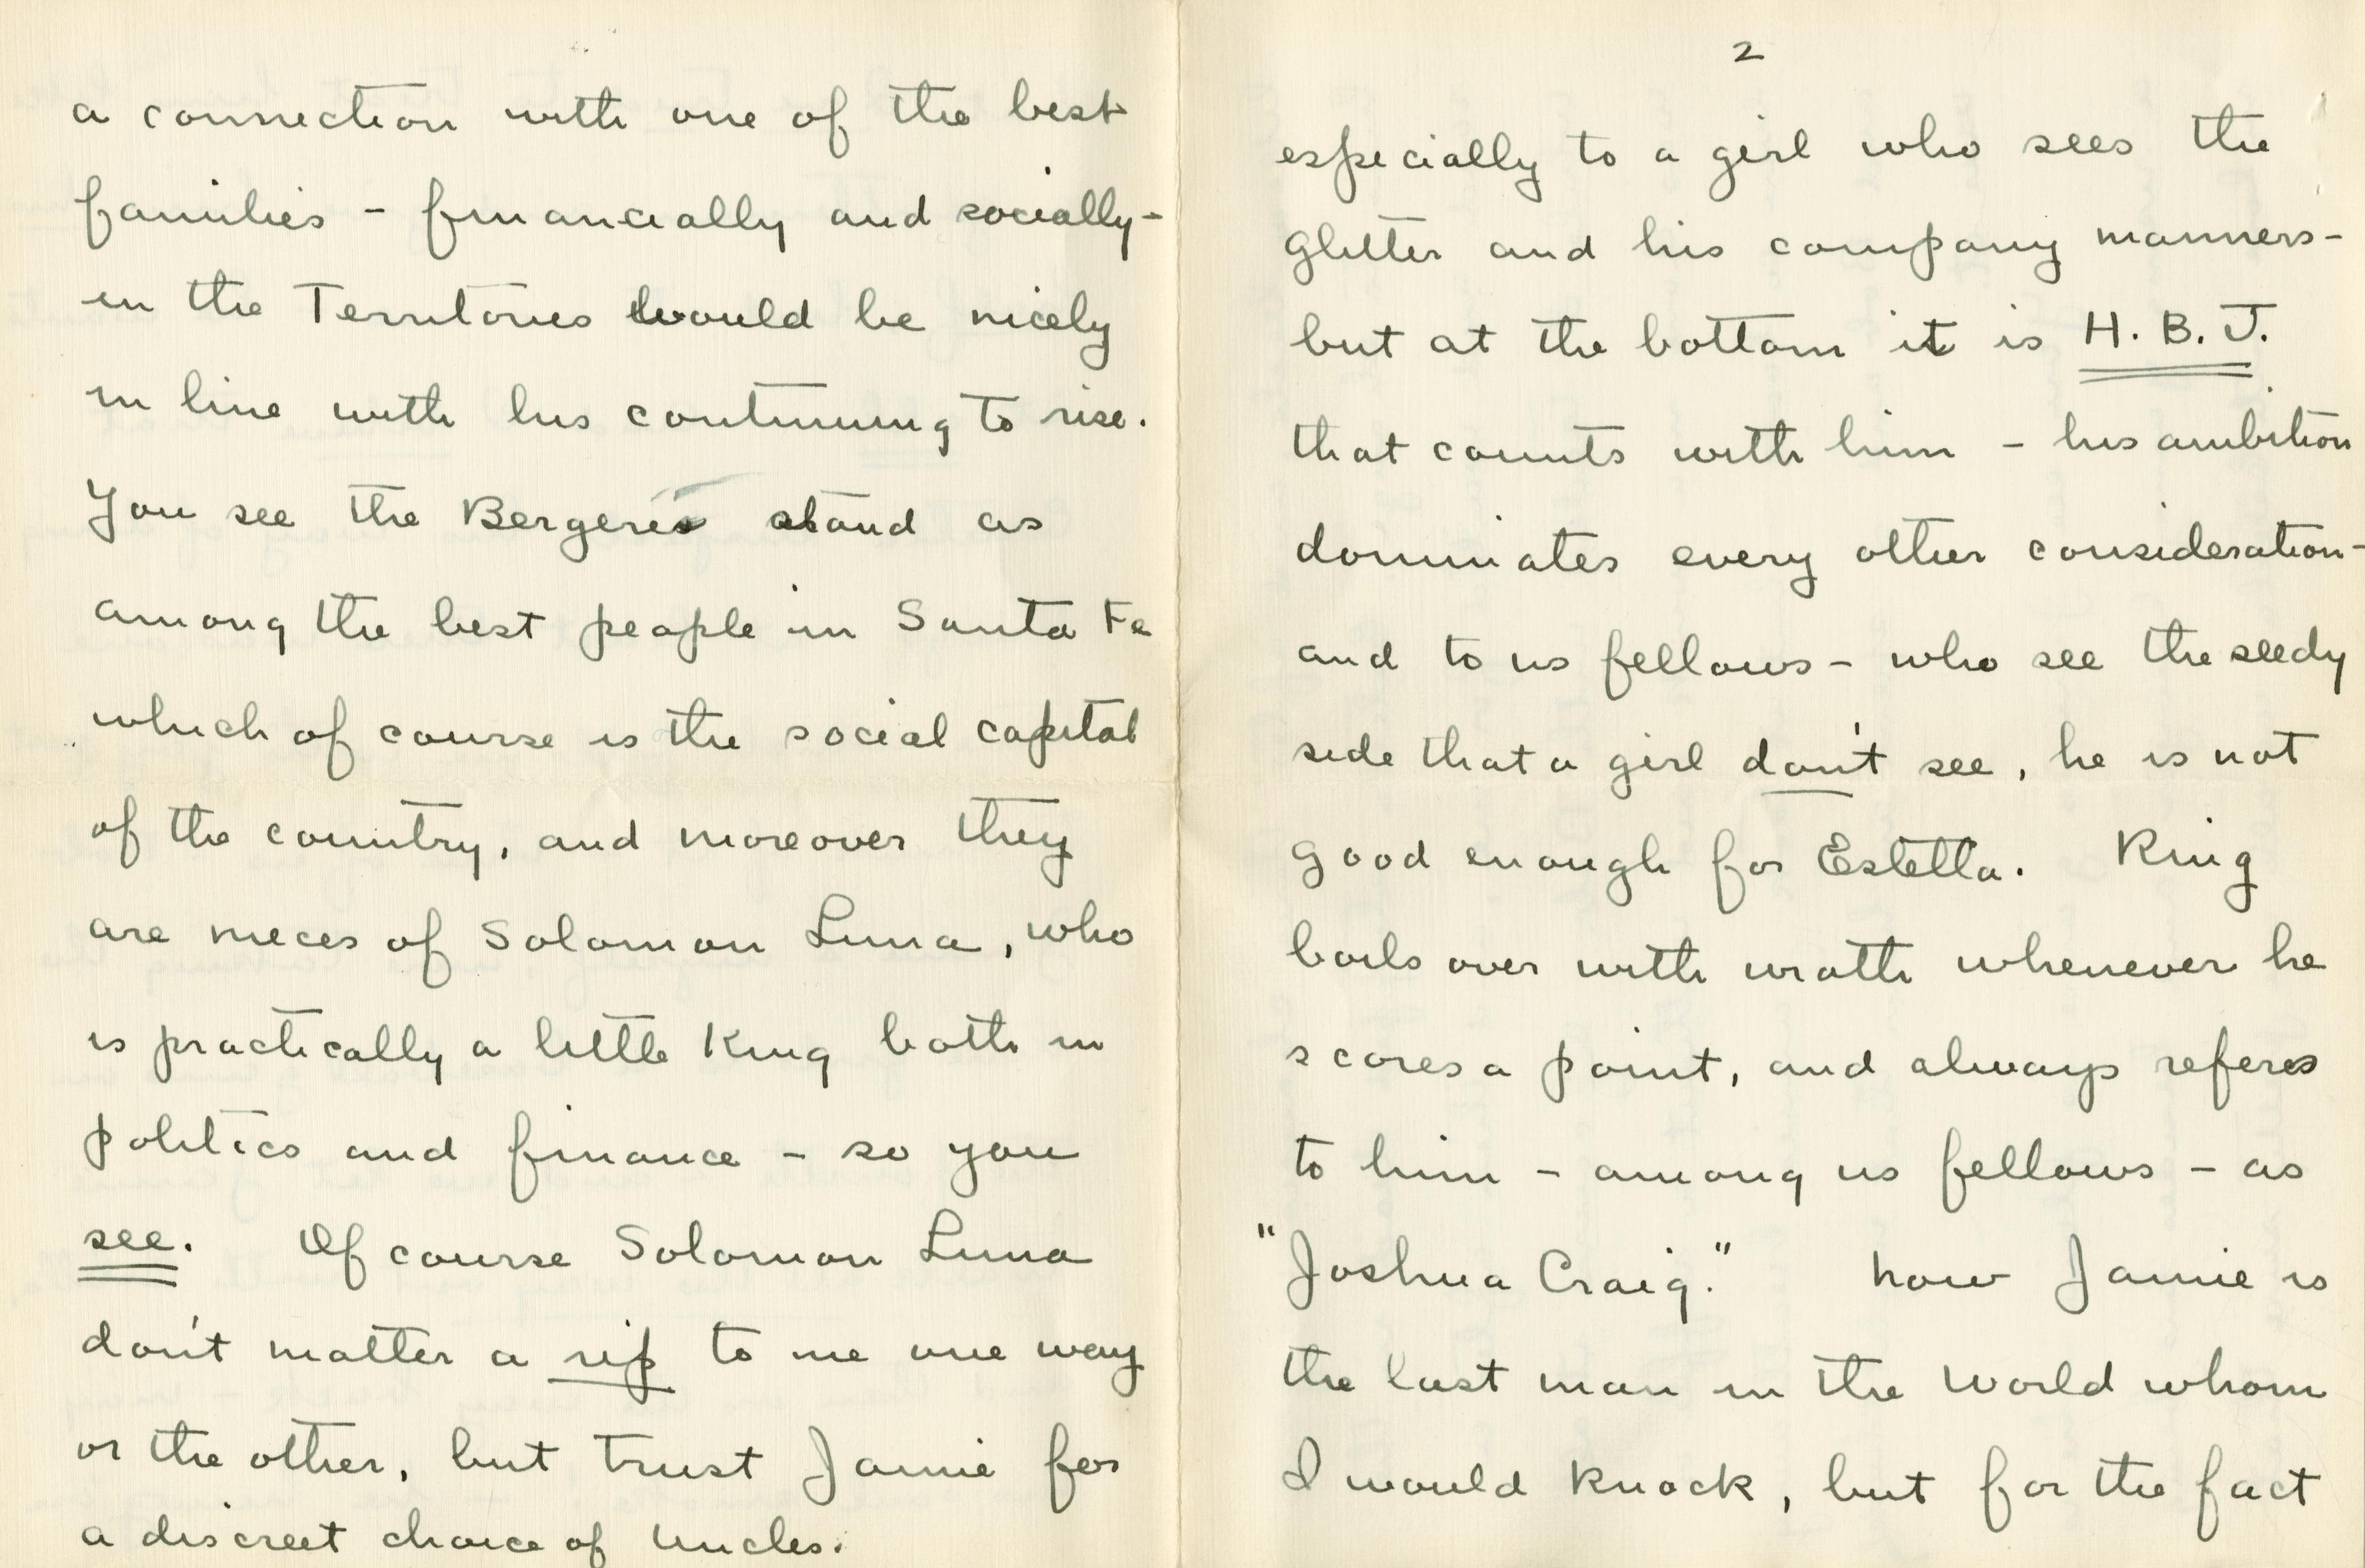 a connection with one of the best
families - financially and socially -
in the Territories would be nicely
in line with his continuing to rise.
You see the Bergeres stand as
among the best people in Santa Fe
which of course is the social capital
of the country, and moreover they
are nieces of Solomon Luna, who
is practically a little King both in
politics and finance - so you
see. Of course Solomon Luna
don't matter a rip to me one way
or the other, but trust Jamie for
a discreet choice of Uncles.
2
especially to a girl who sees the
glitter and his company manners -
but at the bottom it is H. B. J.
that counts with him - his ambition
dominates every other consideration -
and to us fellows - who see the seedy
side that a girl don't see, he is not
good enough for Estella. King
boils over with wrath whenever he
scores a point, and always referes
to him - among us fellows - as
"Joshua Craig." Now Jamie is
the last man in the World whom
I would Knock, but for the fact